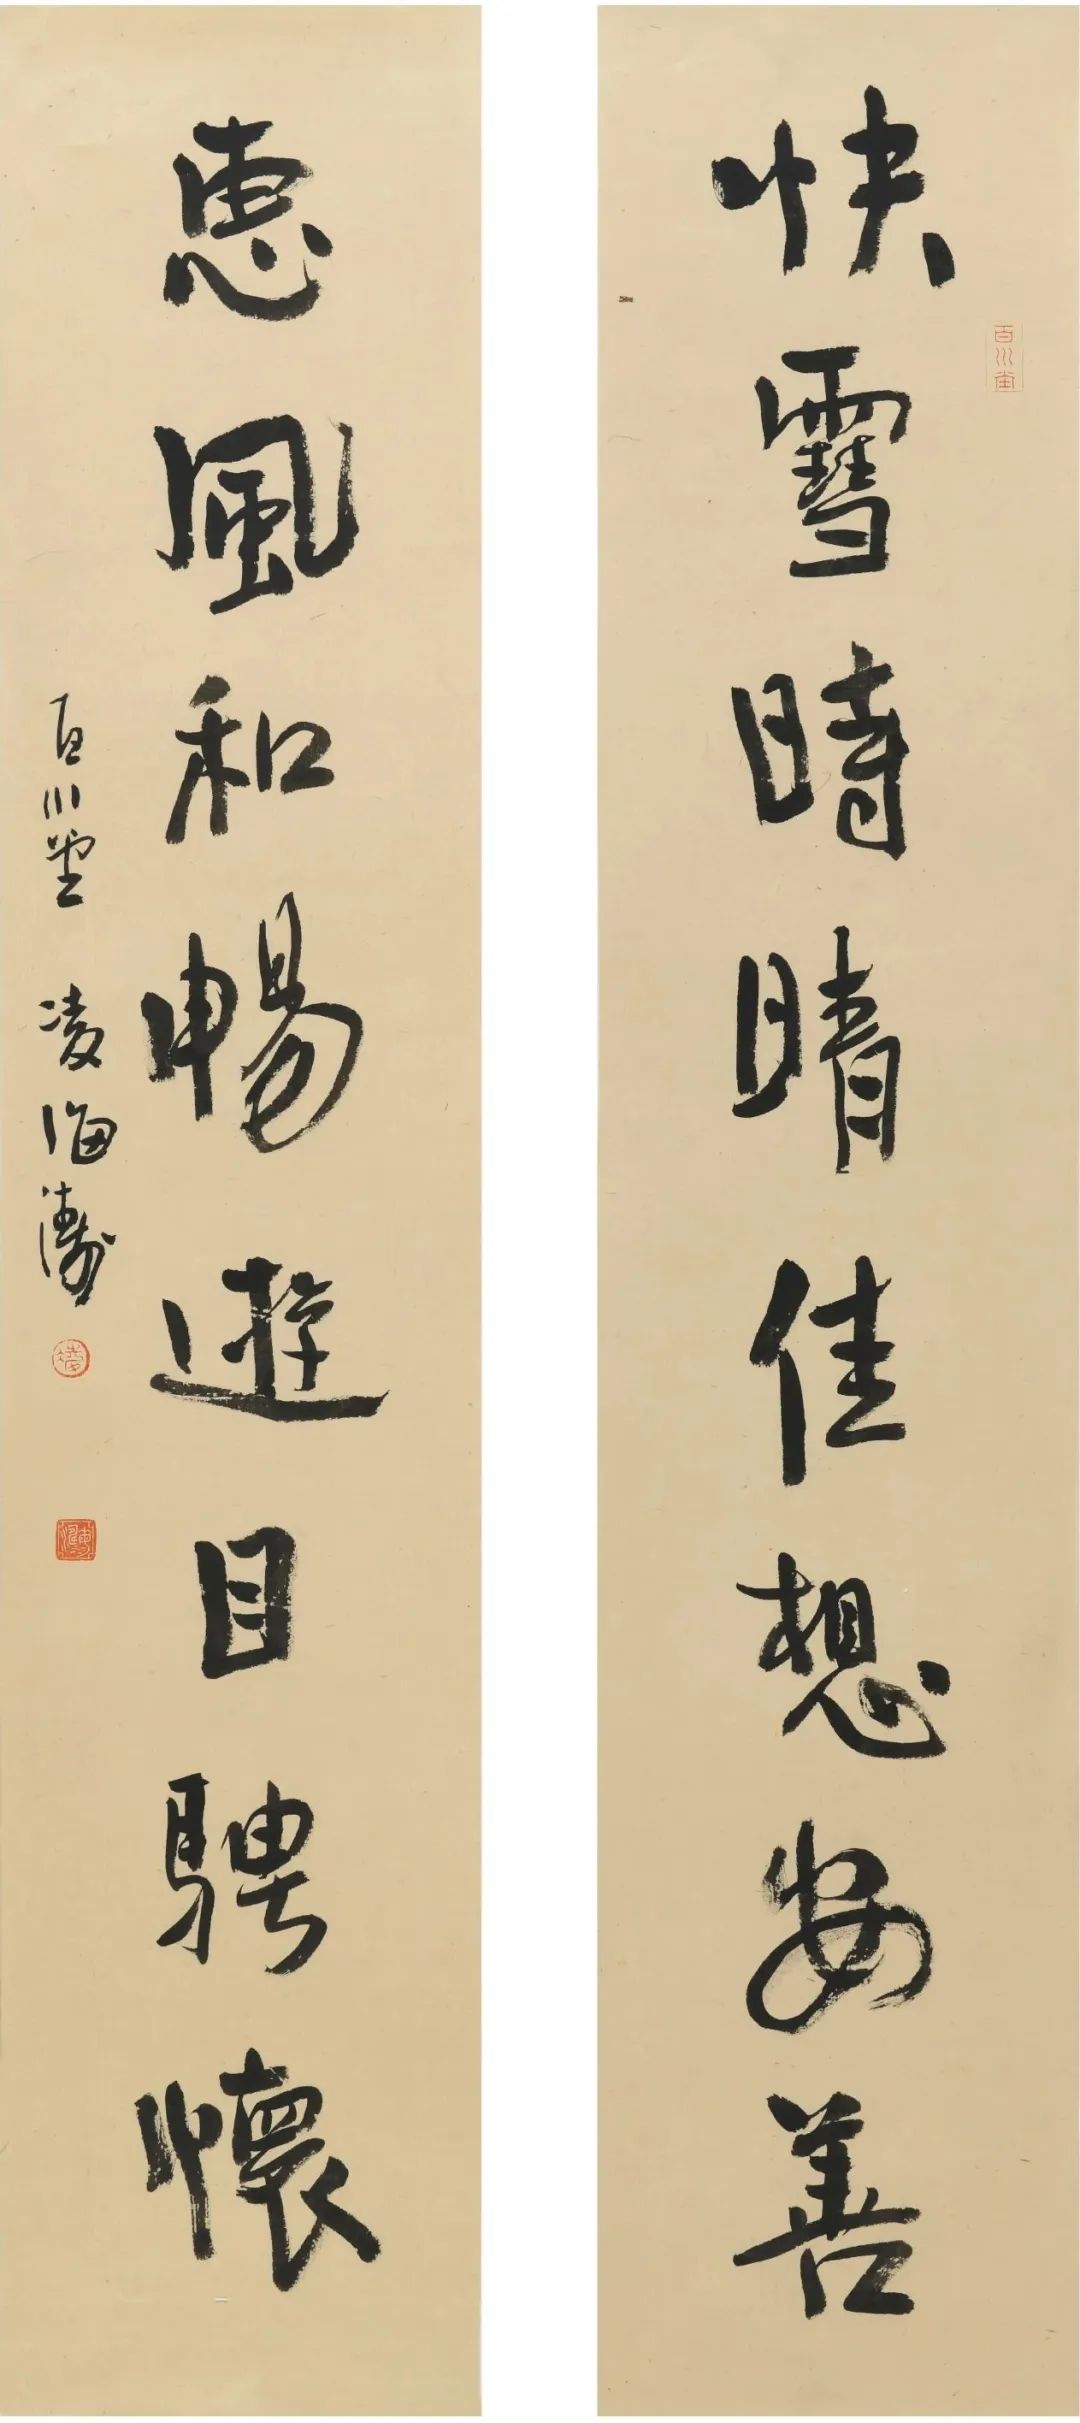 快雪時晴佳想安善
百川堂
惠風和暢遊目騁懷
百川堂 凌海濤